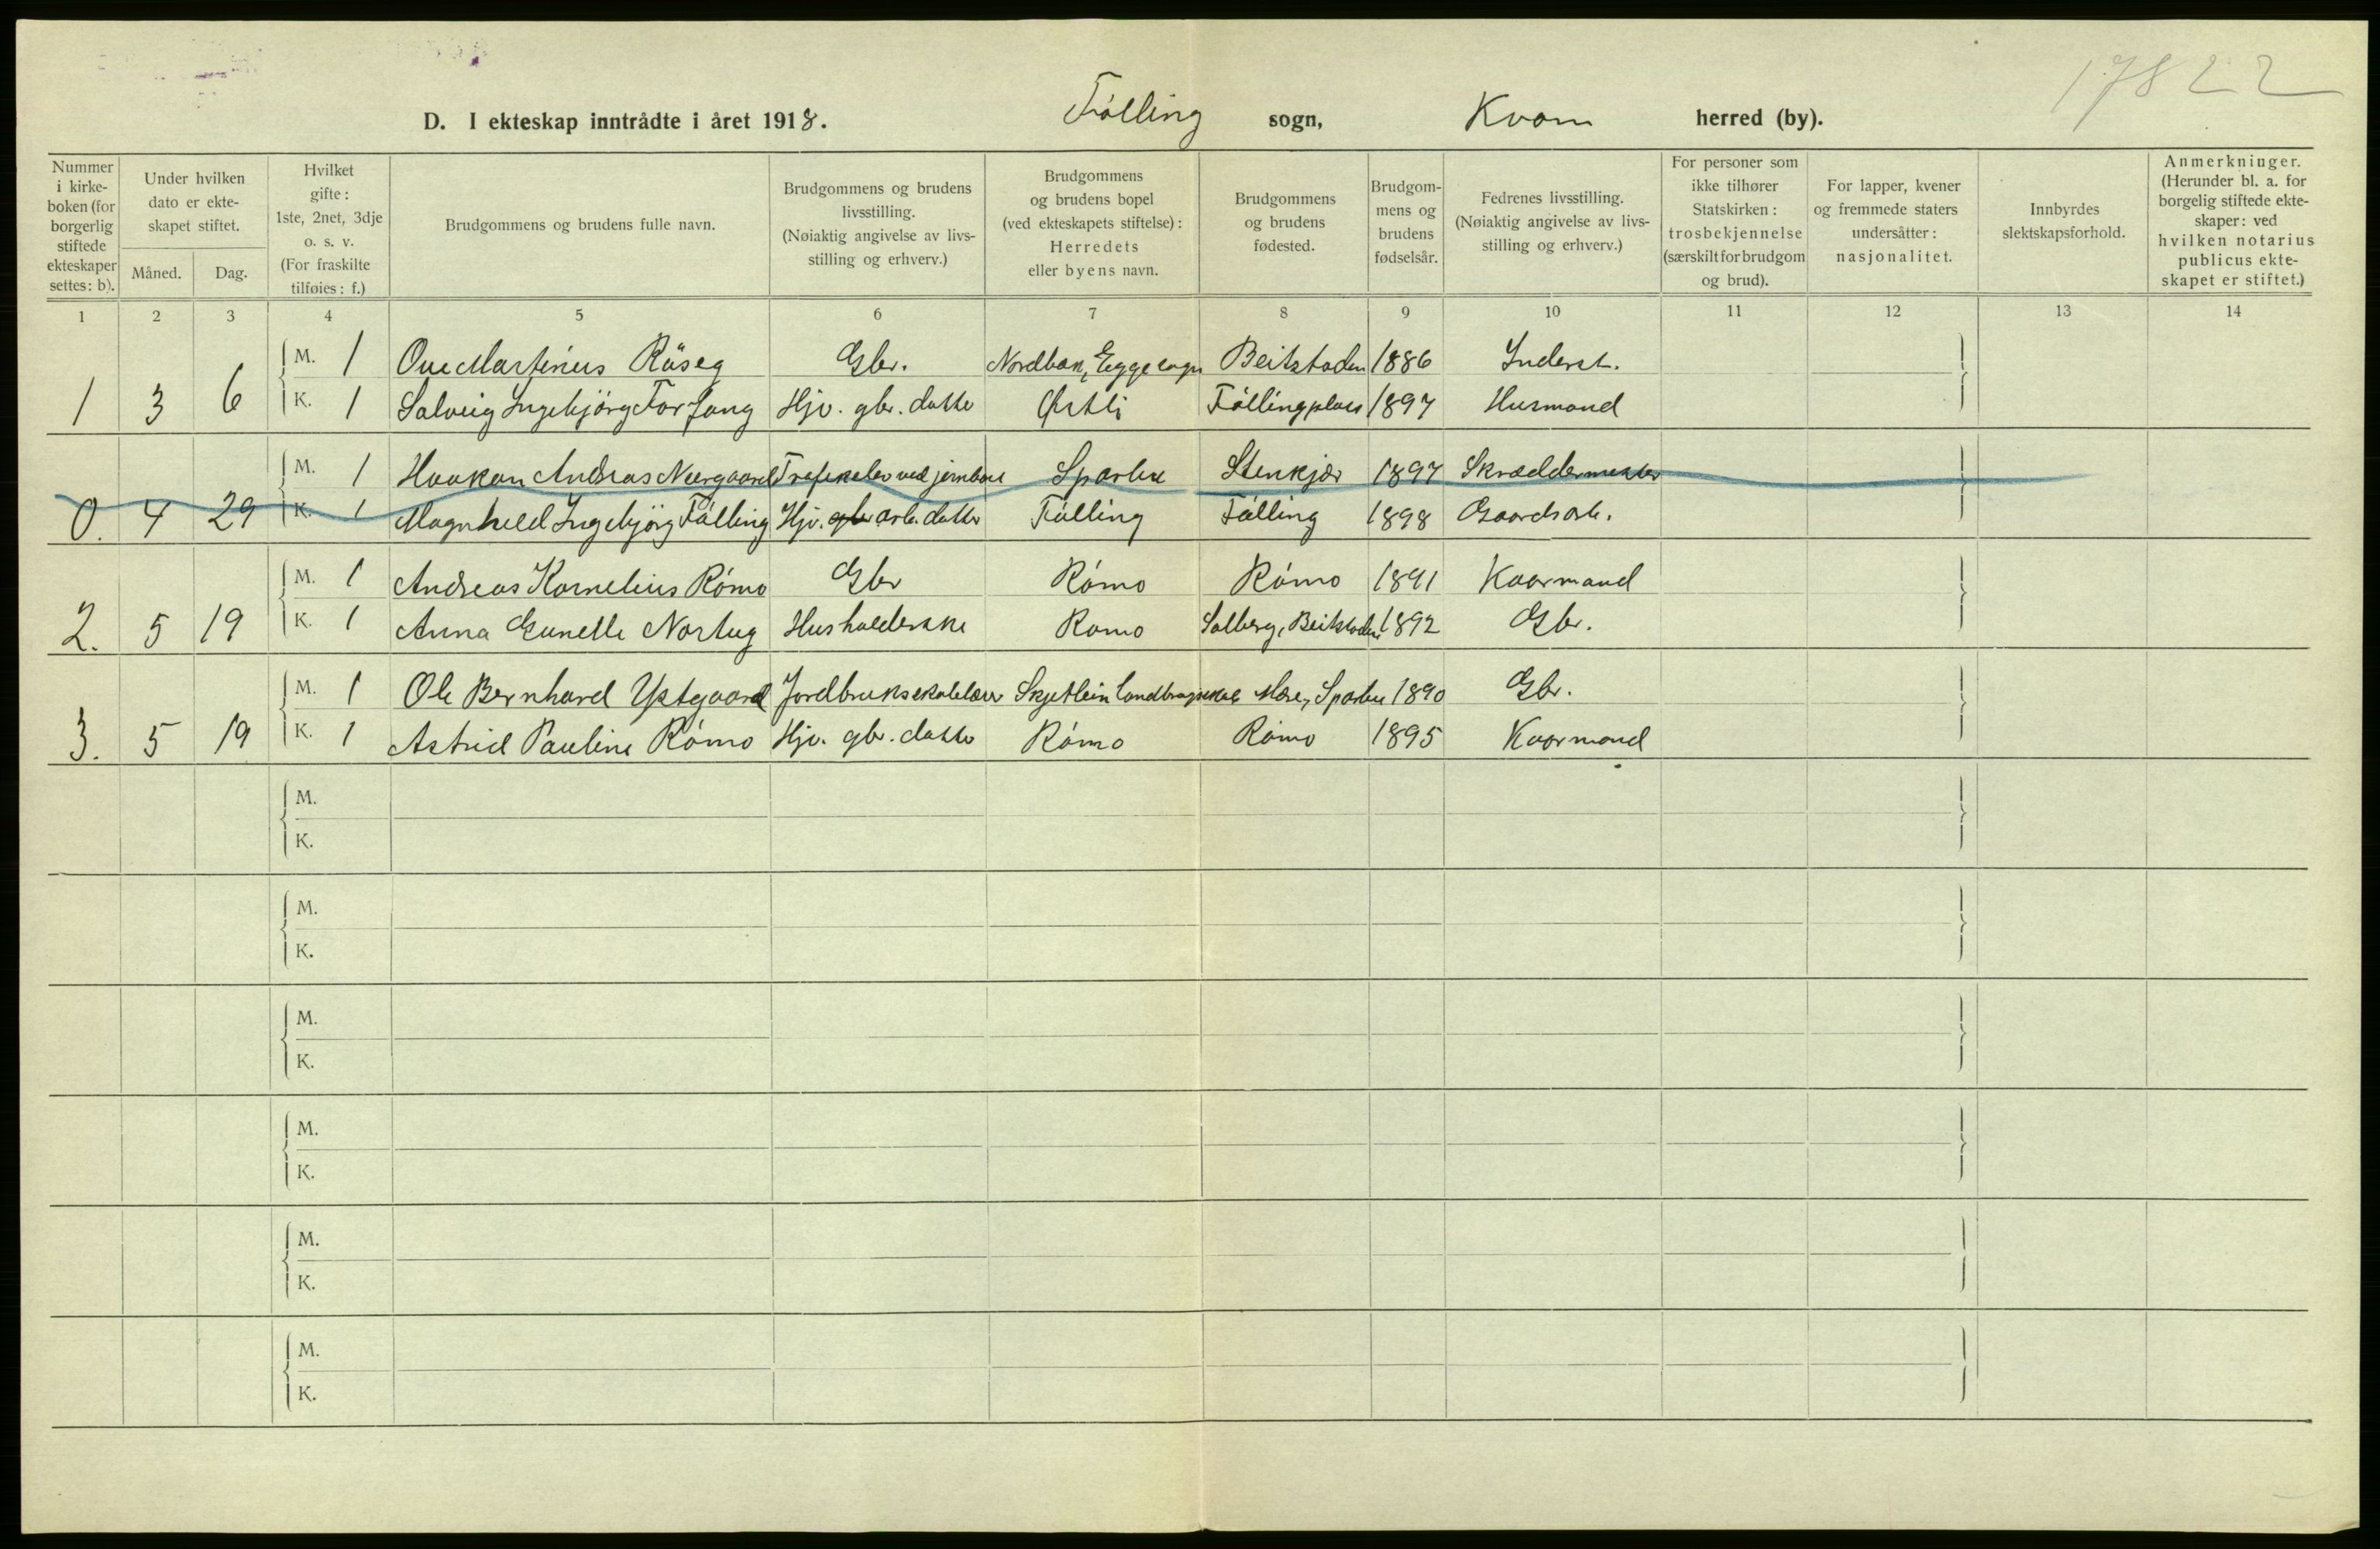 17822
D. I ekteskap inntrådte i året 1918. Følling sogn, Kvam herred (by).
Nummer i kirke-boken (for borgerlig stiftede ekteskaper settes: b).
Under hvilken dato er ekte-skapet stiftet.
Måned. Dag.
Hvilket gifte: 1ste, 2net, 3dje o. s. v. (For fraskilte tilføies: f.)
Brudgommens og brudens fulle navn.
Brudgommens og brudens livsstilling. (Nøiaktig angivelse av livs-stilling og erhverv.)
Brudgommens og brudens bopel (ved ekteskapets stiftelse): Herredets eller byens navn.
Brudgommens og brudens fødested.
Brudgom-mens og brudens fødselsår.
Fedrenes livsstilling. (Nøiaktig angivelse av livs-stilling og erhverv.)
For personer som ikke tilhører Statskirken: trosbekjennelse (særskilt for brudgom og brud).
For lapper, kvener og fremmede staters undersåtter: nasjonalitet.
Innbyrdes slektskapsforhold.
Anmerkninger. (Herunder bl. a. for borgelig stiftede ekte-skaper: ved hvilken notarius publicus ekte-skapet er stiftet.)
1 2 3 4 5 6 7 8 9 10 11 12 13 14
M. 1 Ove Martinus Råseg Gbr. Nordbak, Egge sogn Beitstaden 1886 Inderst.
1 3 6 K. 1 Solveig Ingebjörg Forfang Hjv. gbr. datter Østli Føllingplass 1897 Husmand
M. 1 Haakon Andreas Neergaard Trafikelev ved jernbane Sparbu Stenkjær 1897 Skræddermester
0. 4 29 K. 1 Magnhild Ingebjörg Følling Hjv. gbr arb. datter Følling Følling 1898 Gaardsarb.
M. 1 Andreas Kornelius Rómo Gbr Rómo Rómo 1891 Kaarmand
2. 5 19 K. 1 Anna Gunelle Nortug Husholderske Romo Solberg, Beitstaden 1892 Gbr.
M. 1 Ole Bernhard Ystgaard Jordbruksskolelærer Skjetlein landbruksskole Mære, Sparbu 1890 Gbr.
3. 5 19 K. 1 Astrid Pauline Rómo Hjv. gbr. datter Rómo Rómo 1895 Kaarmand
M.
K.
M.
K.
M.
K.
M.
K.
M.
K.
M.
K.